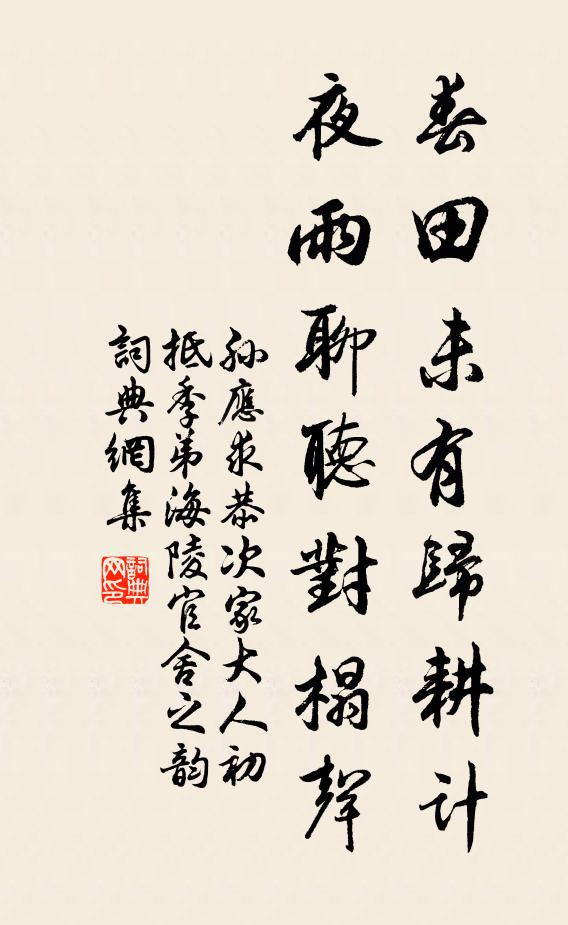 春田未有歸耕計
夜雨聊聽對榻聲
孫應求恭次家大人初
抵季弟海陵官舍之韵
詞典網集
詞典
网印